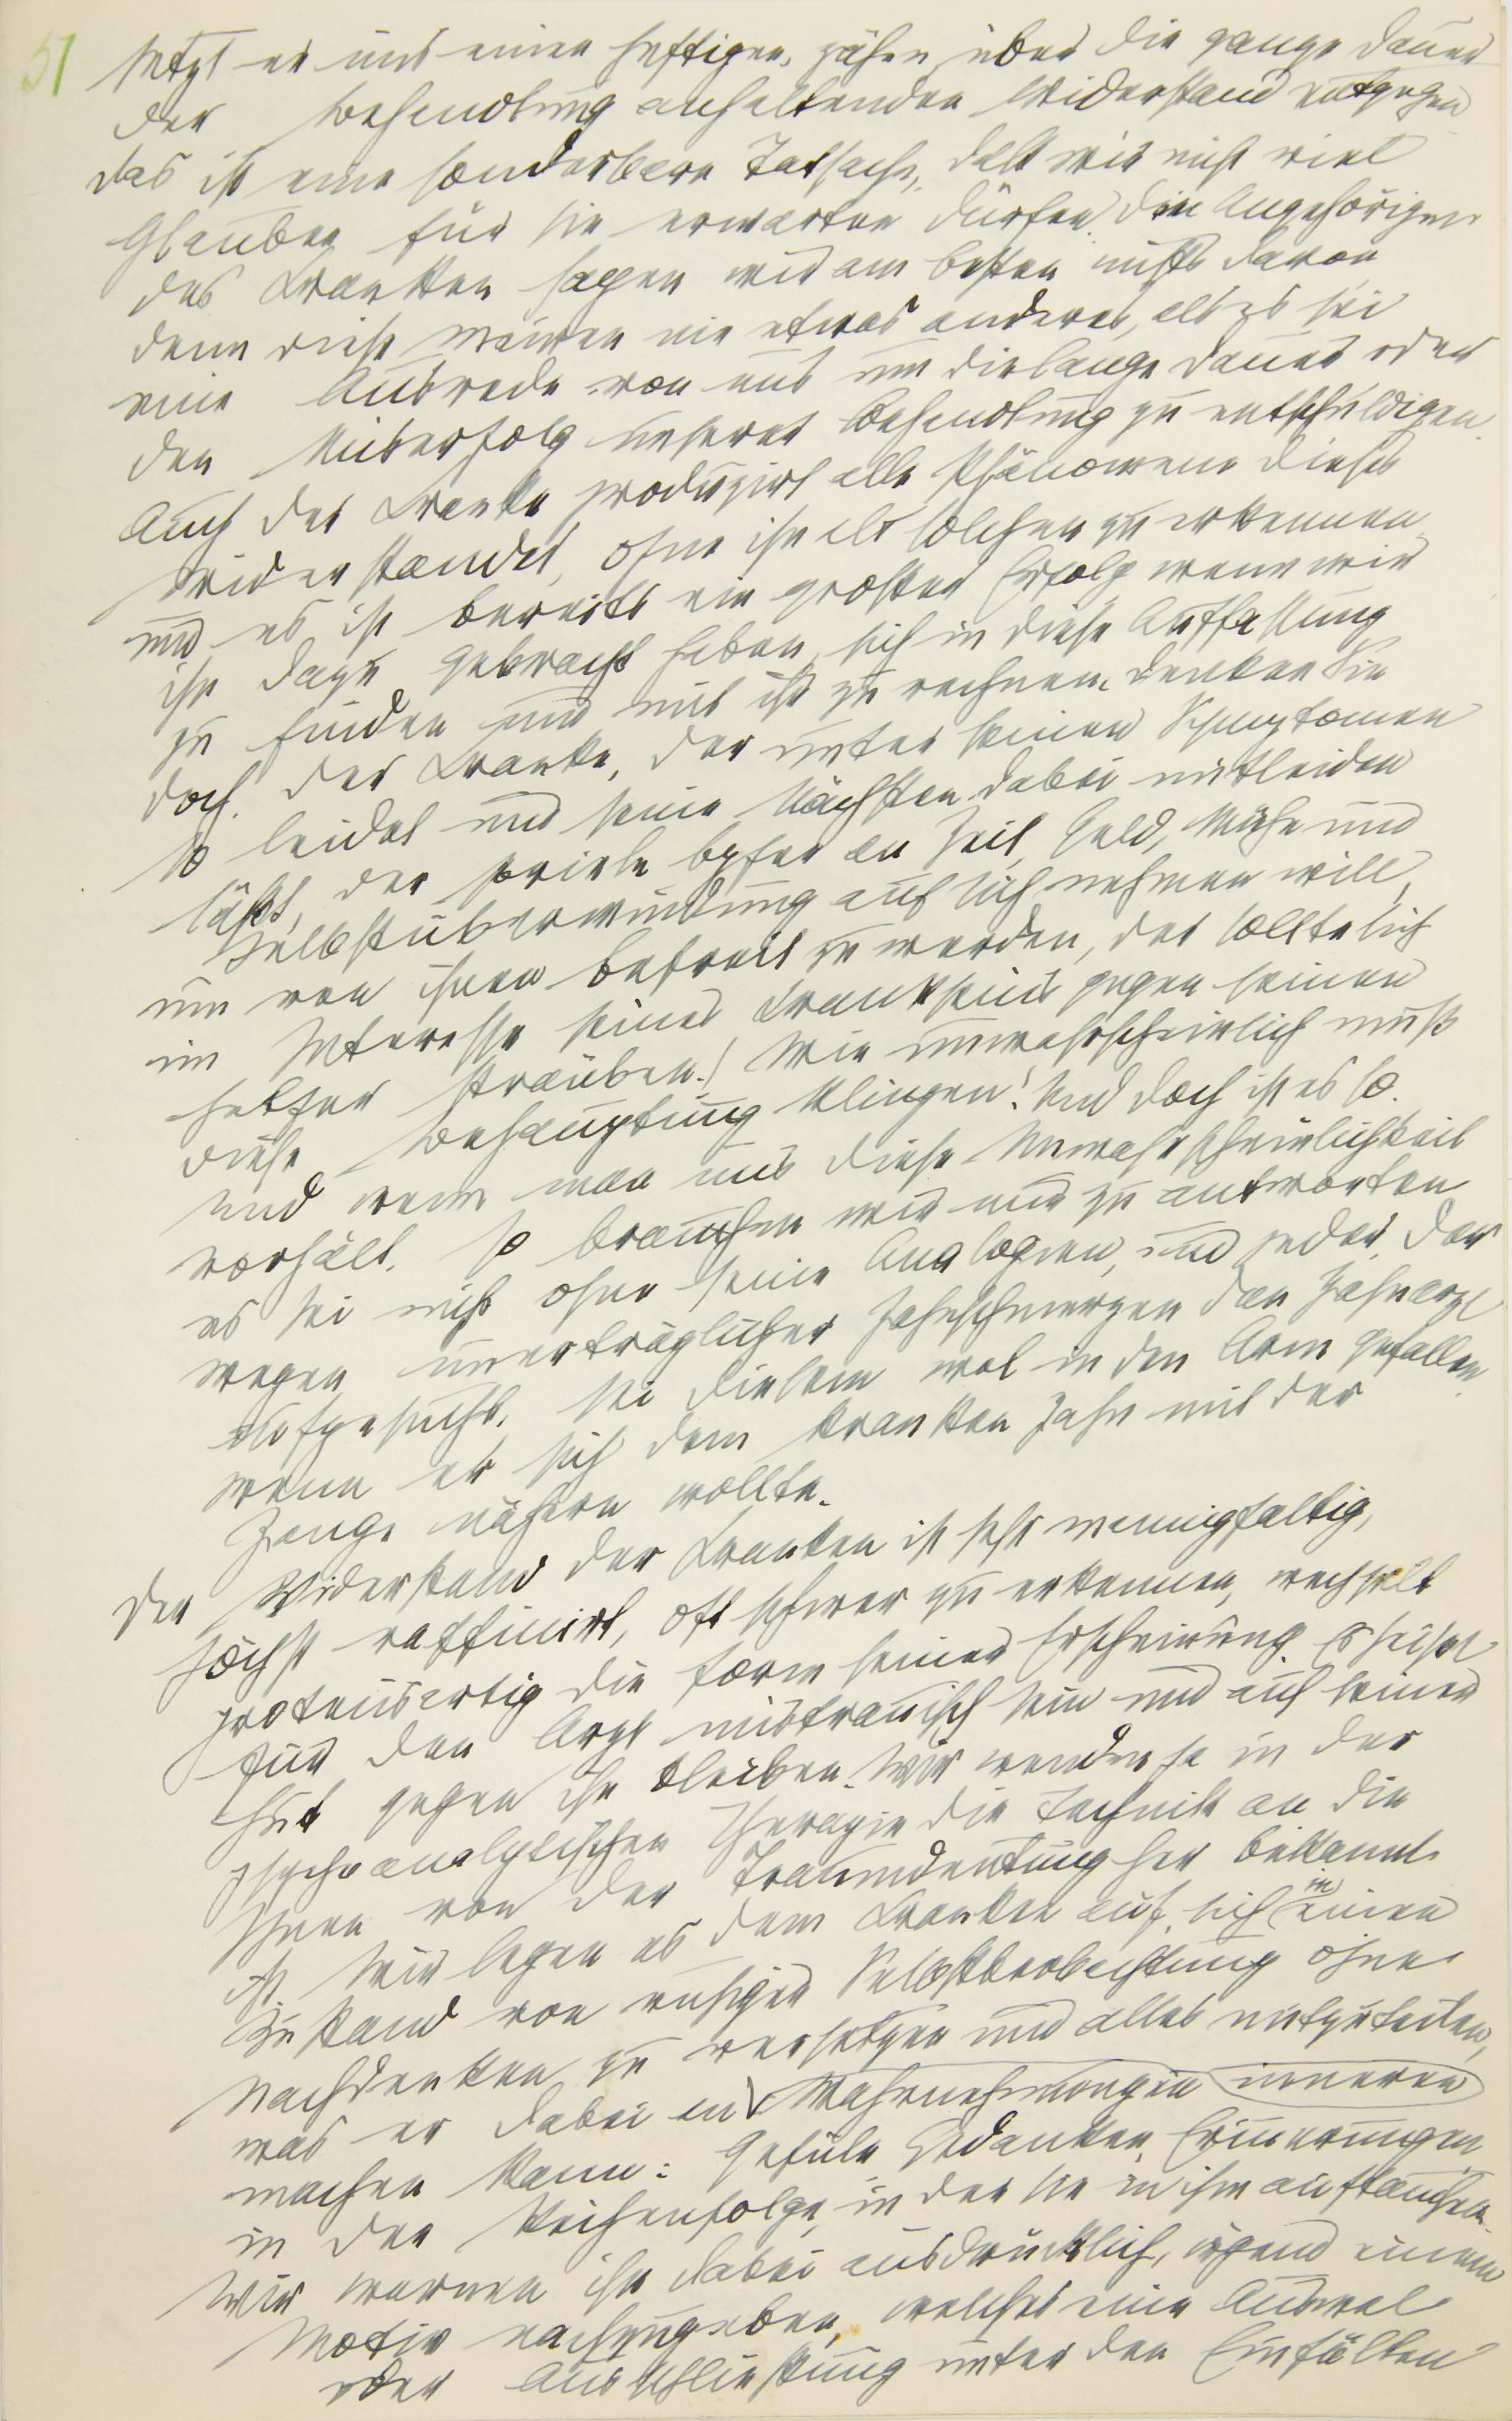 51
setzt er uns einen heftigen, zähen über die ganze Dauer
der Behandlung anhaltenden Widerstand entgegen
das ist eine sonderbare Tatsache, daß wir nicht viel
Glauben für sie erwarten dürfen. Den Angehörigen
des Kranken sagen wir am besten nichts davon
denn diese meinen nie etwas anderes, als es sei
eine Ausrede von uns um die lange Dauer oder
den Miserfolg unserer Behandlung zu entschuldigen.
Auch der Kranke produzirt alle Phänomene dieses
Widerstandes, ohne ihn als solchen zu erkennen
und es ist bereits ein großer Erfolg wenn wir
ihn dazu gebracht haben, sich in diese Auffassung
zu finden und mit ihr zu rechnen. Denken Sie
doch! der Kranke, der unter seinen Symptomen
so leidet und seine Nächsten dabei mitleiden
läßt, der soviele Opfer an Zeit, Geld, Mühe und
Selbstüberwindung auf sich nehmen will,
um von ihnen befreit zu werden, der sollte sich
im Interesse seines Krankseins gegen seinen
Helfer sträuben! Wie unwahrscheinlich muß
diese Behauptung klingen! Und doch ist es so.
und wenn man uns diese Unwahrscheinlichkeit
vorhält, so brauchen wir nur zu antworten
es sei nicht ohne seine Analogien, und jeder, der
wegen unerträglicher Zahnschmerzen den Zahnarzt
aufgesucht, sei diesem wol in den Arm gefallen
wenn er sich dem kranken Zahn mit der
Zange nähern wollte.
Der Widerstand der Kranken ist sehr mannigfaltig,
höchst raffinirt, oft schwer zu erkennen, wechselt
proteusartig die Form seiner Erscheinung. Es heißt
für den Arzt mistrauisch sein und auf seiner
Hut gegen ihn bleiben. Wir wenden ja in der
psychoanalytischen Therapie die Technik an die
Ihnen von der Traumdeutung her bekannt
ist. Wir legen es dem Kranken auf, sich in einen
Zustand von ruhiger Selbstbeobachtung ohne
Nachdenken zu versetzen und alles mitzuteilen,
was er dabei an Wahrnehmungen inneren
machen kann: Gefüle Gedanken, Erinerungen,
in der Reihenfolge, in der sie in ihm auftauchen.
Wir warnen ihn dabei ausdrücklich, irgend einem
Motiv nachzugeben, welches eine Auswal
oder Ausschließung unter den Einfällen